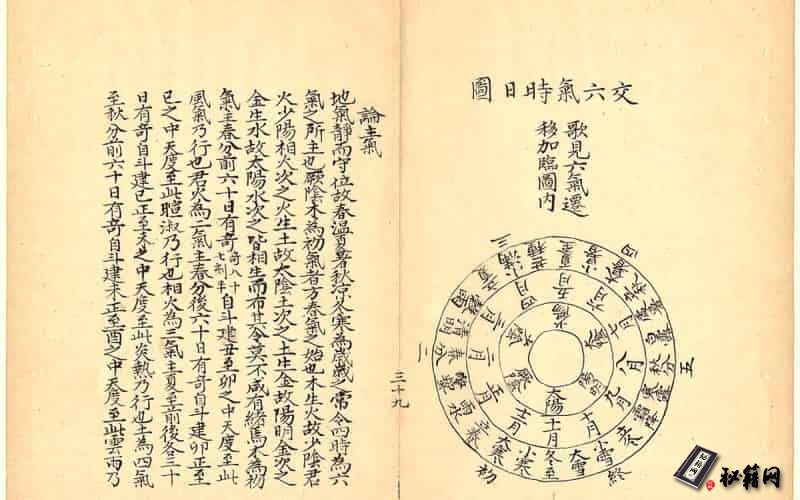 交六氣時日圖
歌見六氣遷
移加臨圖內
初
二
三
四
五
終
大寒
雨水
清明
小滿
芒種
小暑
小雪
大雪
冬至
小寒
正月
二月
三月
四月
五月
六月
七月
八月
九月
十月
十一月
十二月
太陽
陽明
三十九
論主氣
地氣靜而守位故春溫夏暑秋凉冬寒為歲歲之常令四時為六
氣之所主也厥陰木為初氣者方春氣之始也木生火故少陰君
火少陽相火次之火生土故太陰土次之土生金故陽明金次之
金生水故太陽水次之皆相生而布其令莫不咸有緒焉木為初
氣主春分前六十日有奇奇八十七刻半自斗建丑至卯之中天度至此
風氣乃行也君火為二氣主春分後六十日有奇自斗建卯正至
巳之中天度至此暄淑乃行也相火為三氣主夏至前後各三十
日有奇自斗建巳正至未之中天度至此炎熱乃行也土為四氣
至秋分前六十日有奇自斗建未正至酉之中天度至此雲雨乃
秘籍网